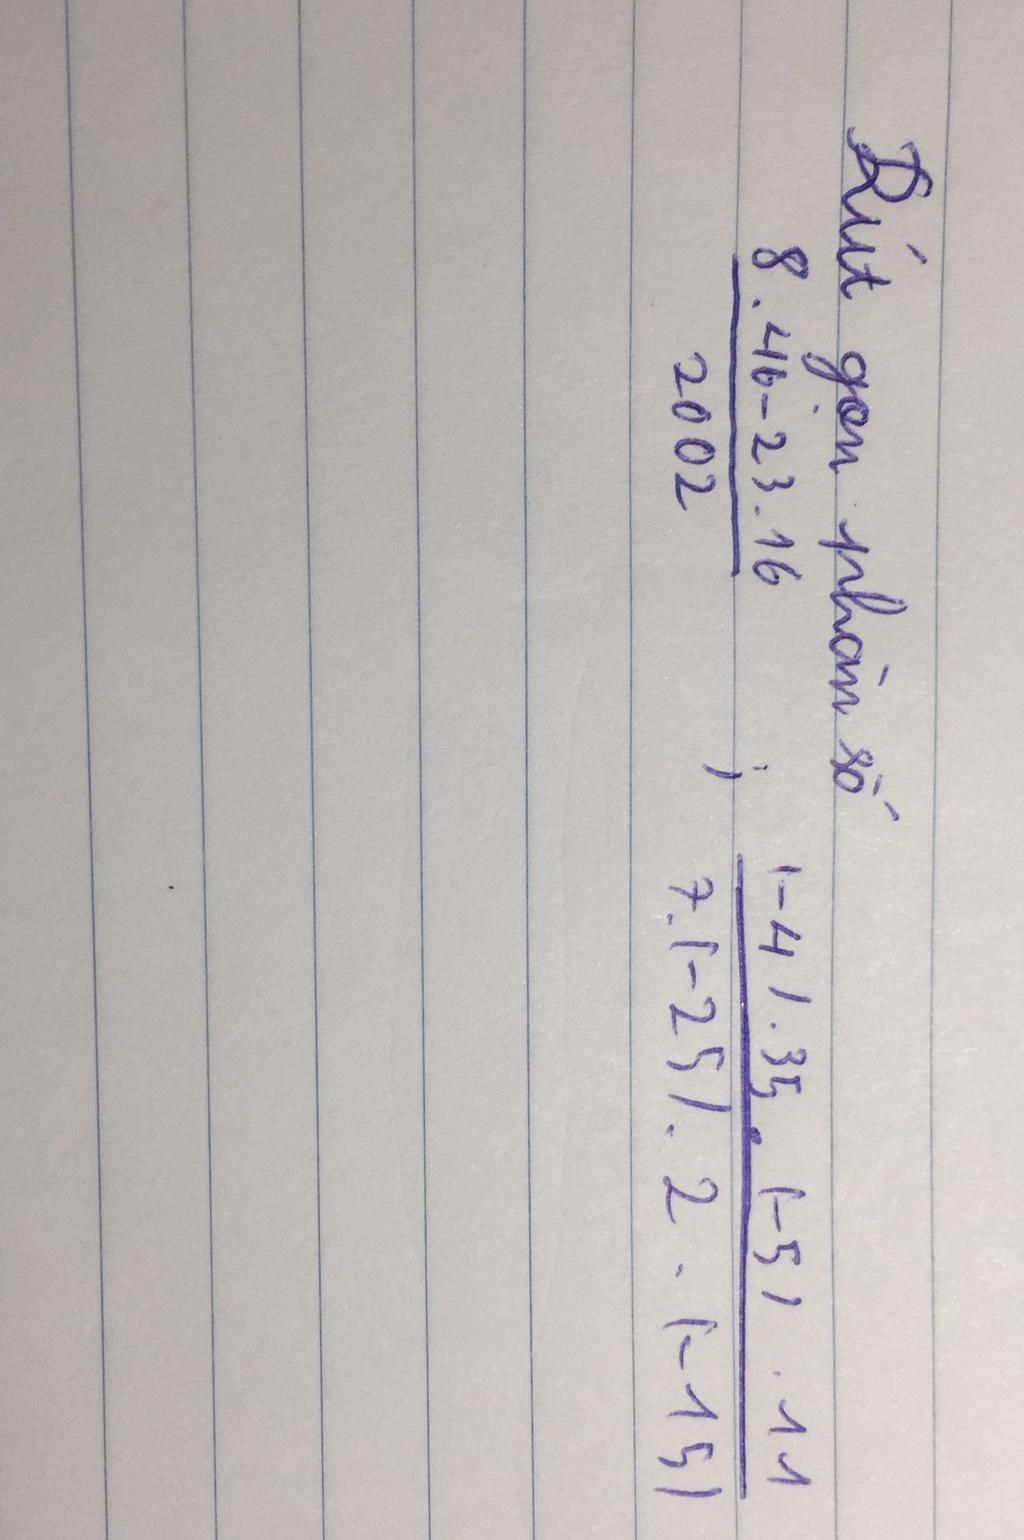 Rút gọn phân số
8.46-23.16 ; (-4).35.(-5).11
2002 7.(-25).2.(-15)